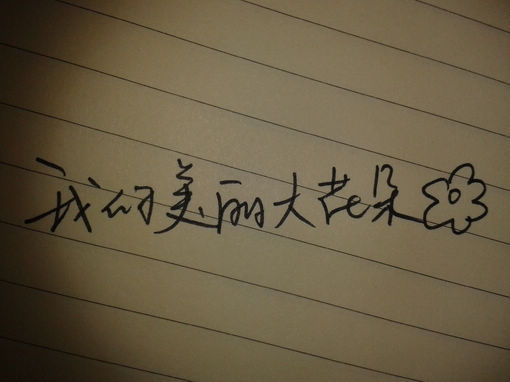 我们美丽大花朵